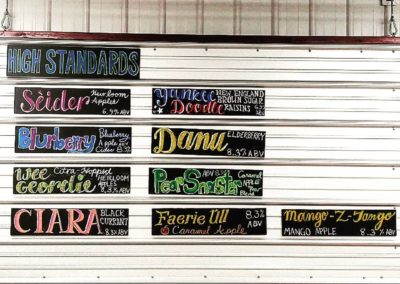 HIGH STANDARDS
Sèider Heirloom
Apples
6.9% ABV
Yankee NEW ENGLAND
Doodle BROWN SUGAR
RAISINS
Blurberry Blueberry
Apple
Cider
Danu ELDERBERRY
8.3% ABV
Wee Citra-Hopped
Geordie HEIRLOOM
APPLES
8.3% ABV
PearSnaster Caramel
APPLE
CIARA BLACK
CURRANT
8.3% ABV
Faerie Till 8.3%
ABV
Caramel Apple
Mango-Z-Tango
MANGO APPLE 8.3% ABV